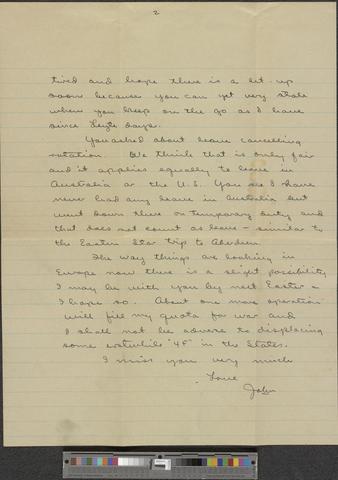 2
tired and hope there is a let-up
soon because you can get very stale
when you keep on the go as I have
since Leyte days.
You asked about leave cancelling
rotation. We think that is only fair
and it applies equally to leave in
Australia or the U.S. You see I have
never had any leave in Australia but
went down there on temporary duty and
that does not count as leave - similar to
the Eastern Star trip to Aberdeen.
The way things are looking in
Europe now there is a slight possibility
I may be with you by next Easter -
I hope so. About one more operation
will fill my quota for war and
I shall not be adverse to displacing
some erstwhile "4F" in the States.
I miss you very much
Love
John